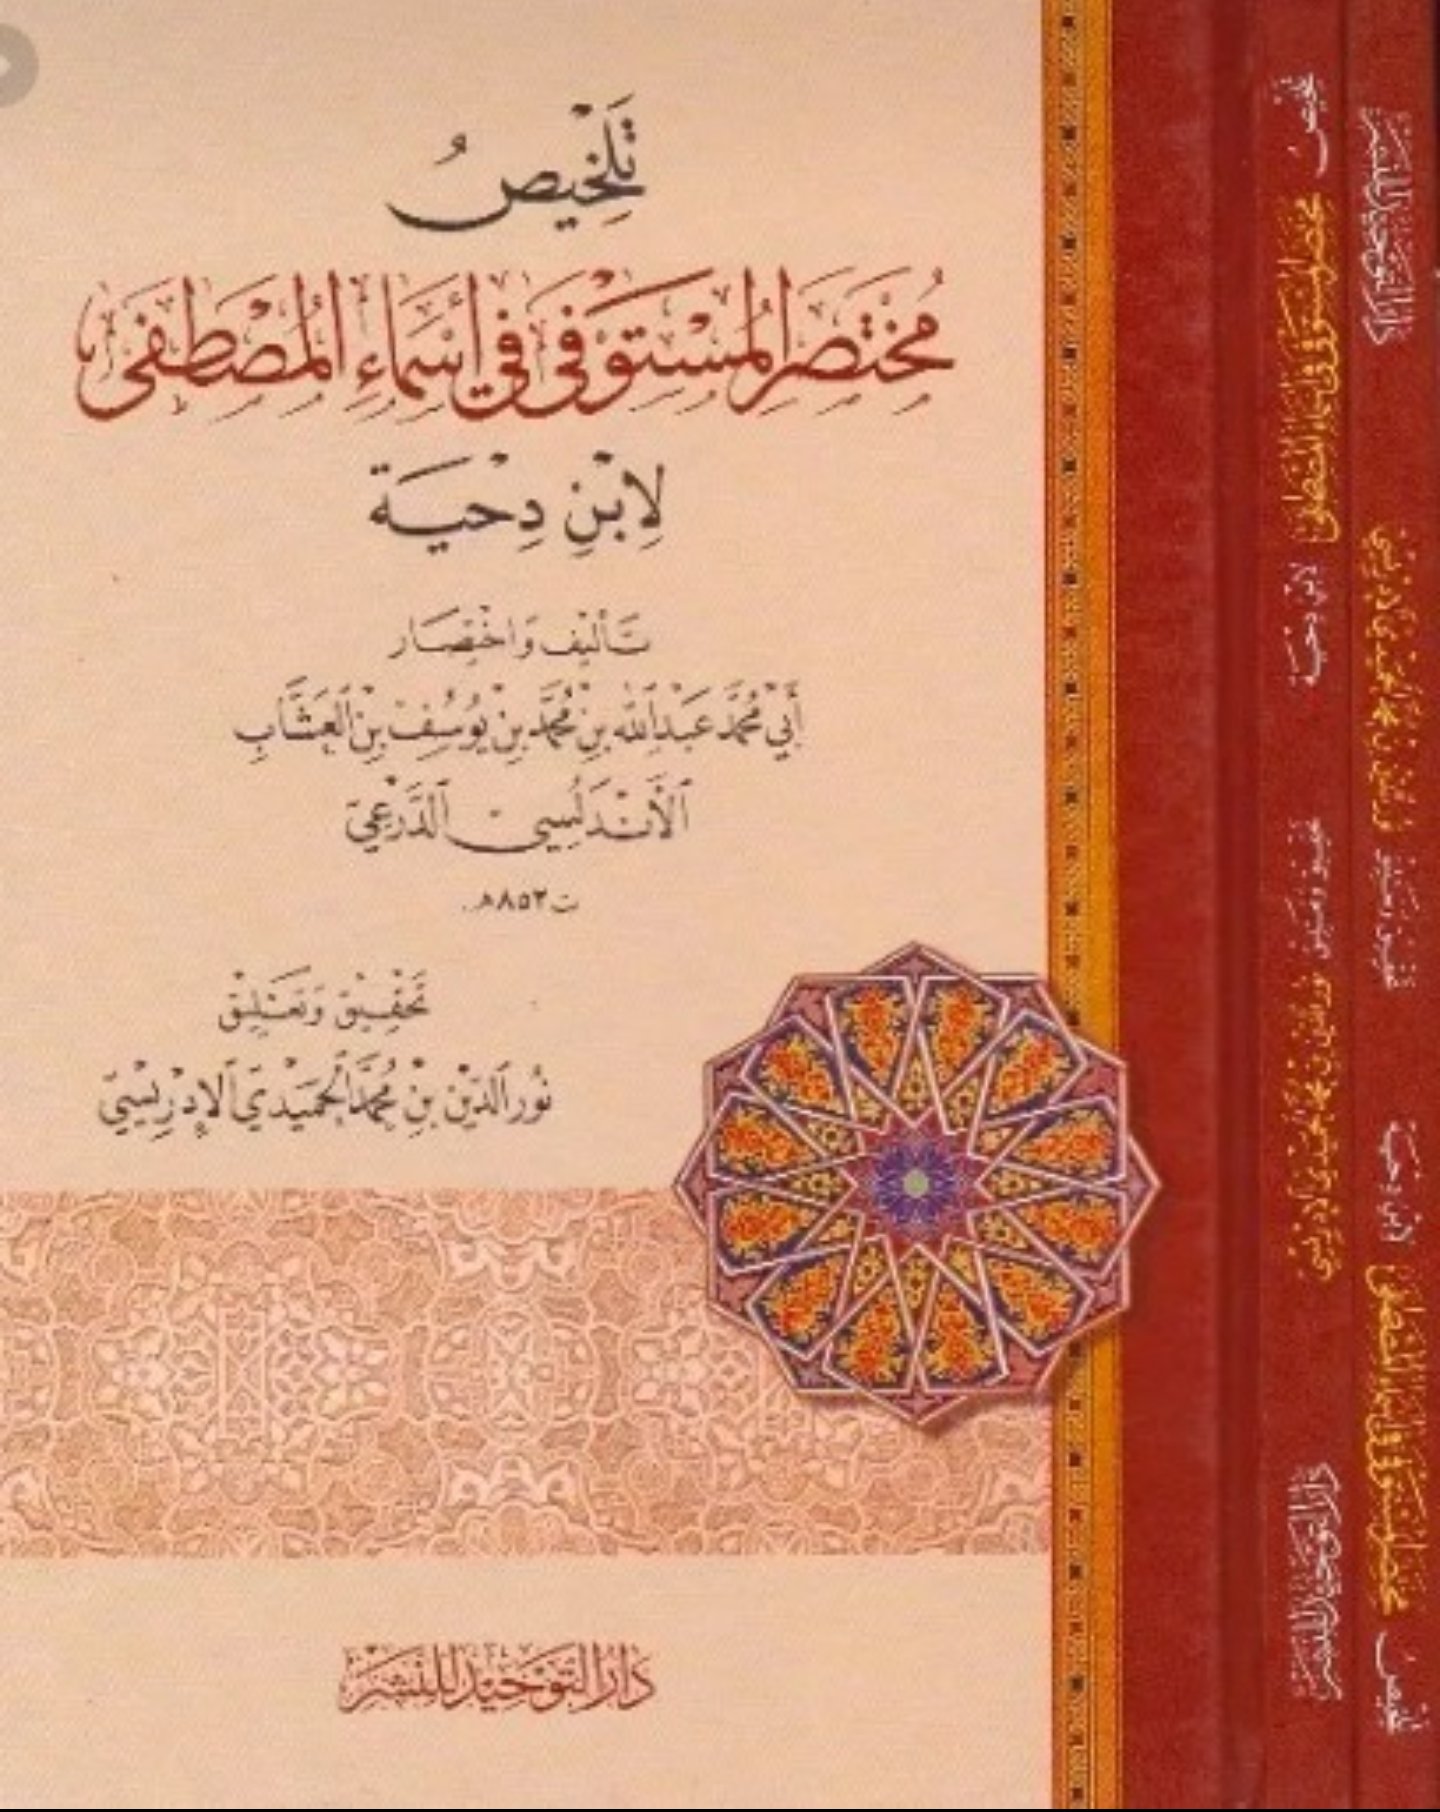 تَلْخِيصُ
مُخْتَصَرِ المُسْتَوْفَى فِي أَسْمَاءِ المُصْطَفَى
لِابْنِ دِحْيَة
تَأْلِيْف وَاخْتِصَار
أَبِي مُحَمَّد عَبْدِ اللهِ بْنِ مُحَمَّدِ بْنِ يُوسُفَ بْنِ العَشَّابِ
الأَنْدَلُسِي الدَّرْعِي
ت ٨٥٣هـ.
تَحْقِيْق وَتَعْلِيْق
نُور الدِّيْن بْنِ مُحَمَّد الحَمِيْدِي الإِدْرِيْسِي
دَارُ التَّوْحِيْدِ لِلنَّشْرِ
تلخيص مختصر المستوفى في أسماء المصطفى لابن دحية
تحقيق وتعليق نور الدين بن محمد الحميدي الإدريسي
دار التوحيد للنشر
تلخيص مختصر المستوفى في أسماء المصطفى لابن دحية
نور الدين بن محمد الحميدي الإدريسي
دار التوحيد للنشر